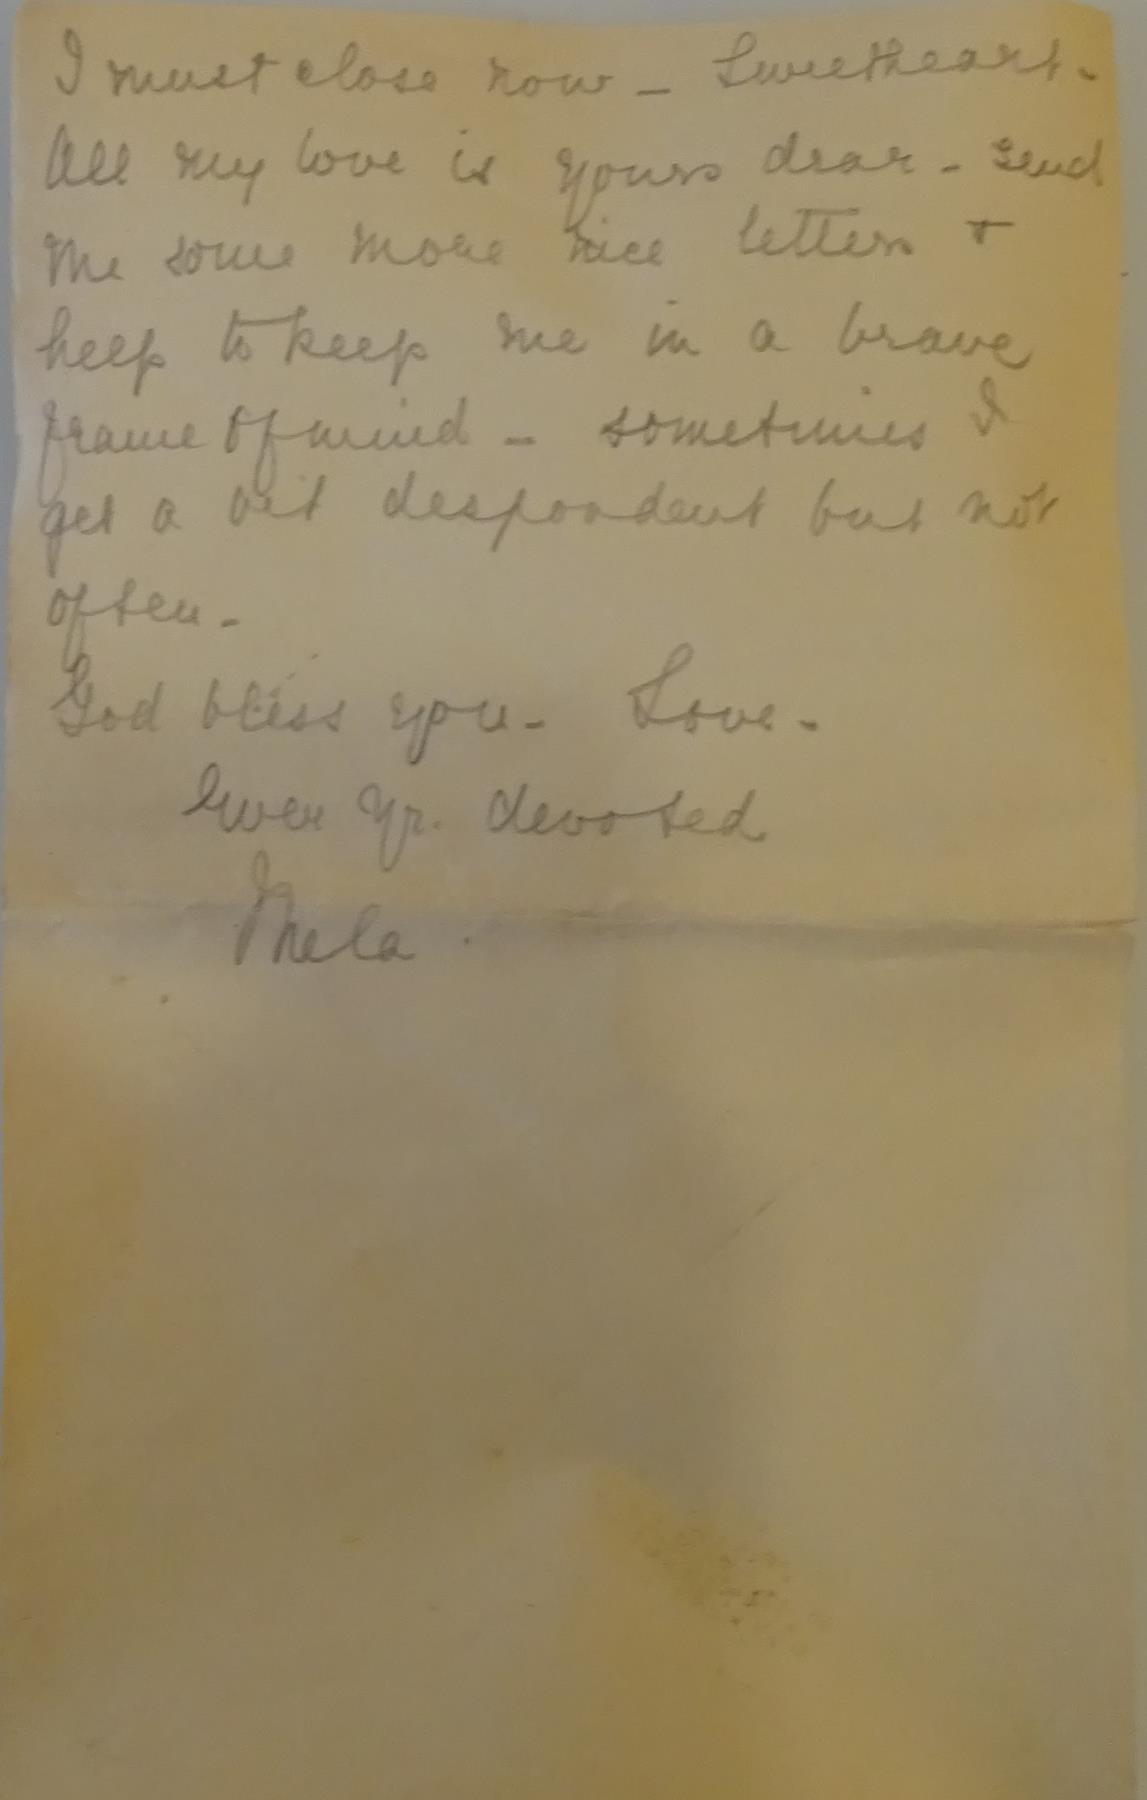 I must close now - Sweetheart -
All my love is yours dear - send
me some more nice letters &
help to keep me in a brave
frame of mind - sometimes I
get a bit despondent but not
often -
God bless you - Love -
Ever Yr. devoted
Thela